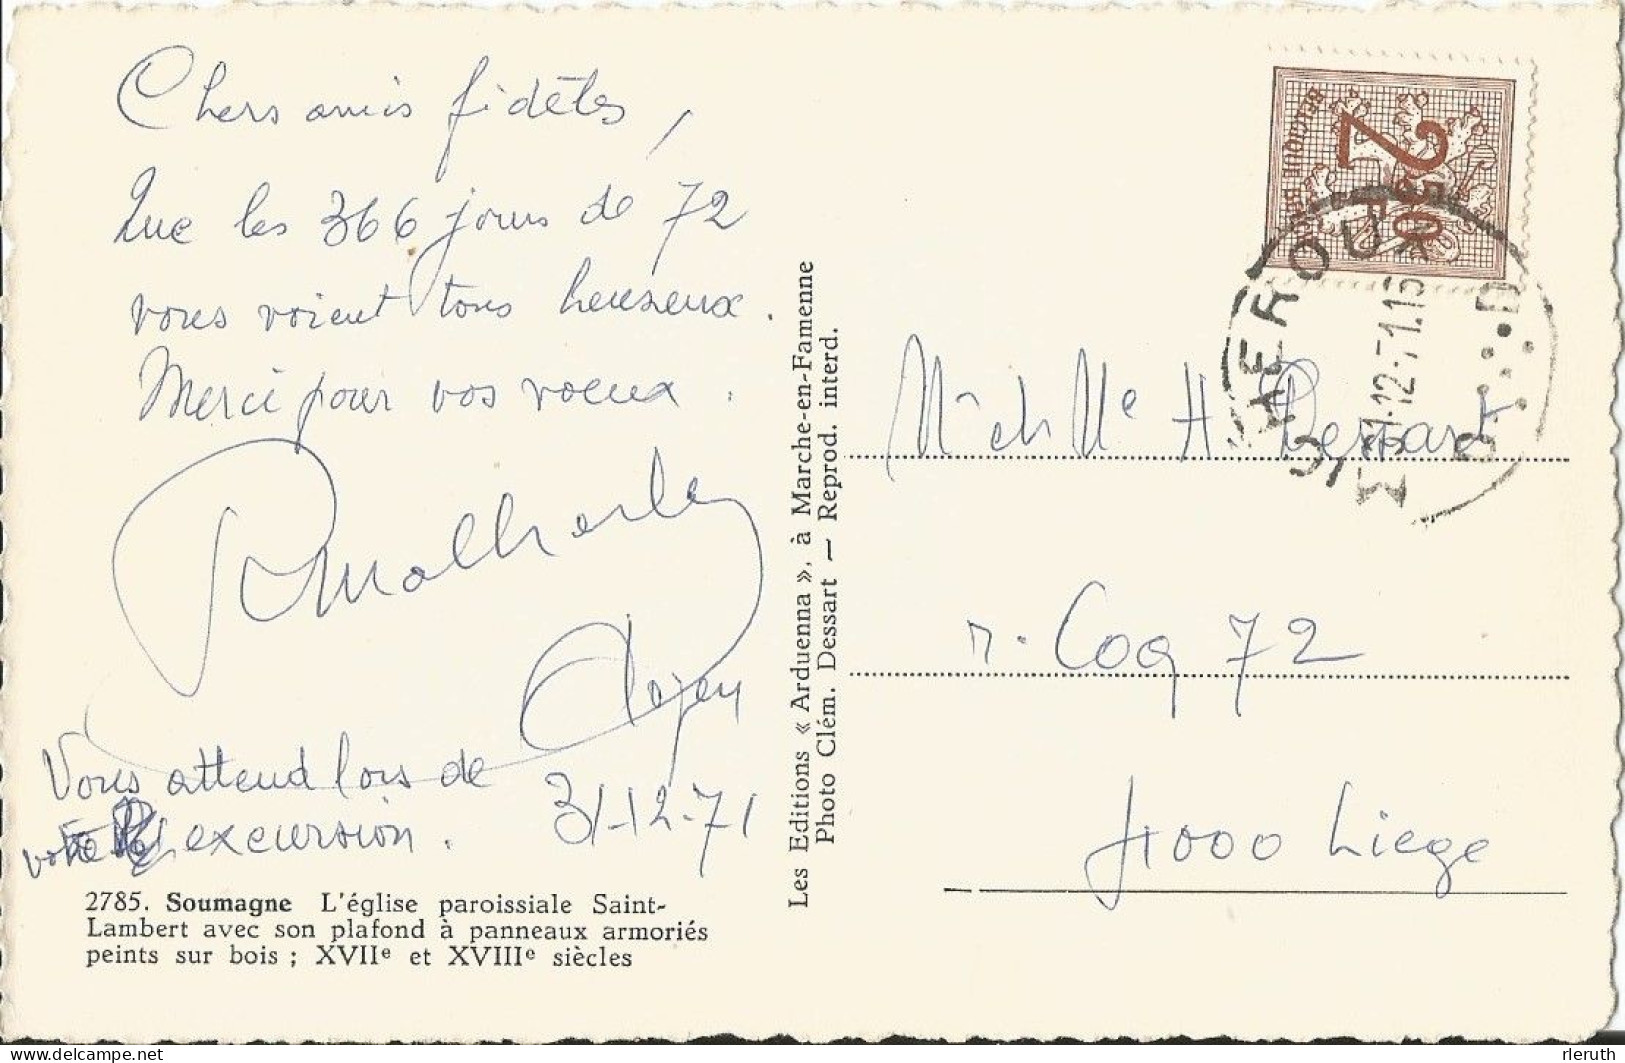 Chers amis fidèles,
Que les 366 jours de 72
vous voient tous heureux.
Merci pour vos voeux.
Doyen
Vous attend lors de
votre excursion. 31-12-71
2785. Soumagne L'église paroissiale Saint-
Lambert avec son plafond à panneaux armoriés
peints sur bois ; XVIIe et XVIIIe siècles
Les Editions « Arduenna », à Marche-en-Famenne
Photo Clém. Dessart — Reprod. interd.
BELGIQUE
2F50
MICHEROUX
31-12-71
H Dessart
r. Coq 72
4000 Liege
delcampe.net
rleruth